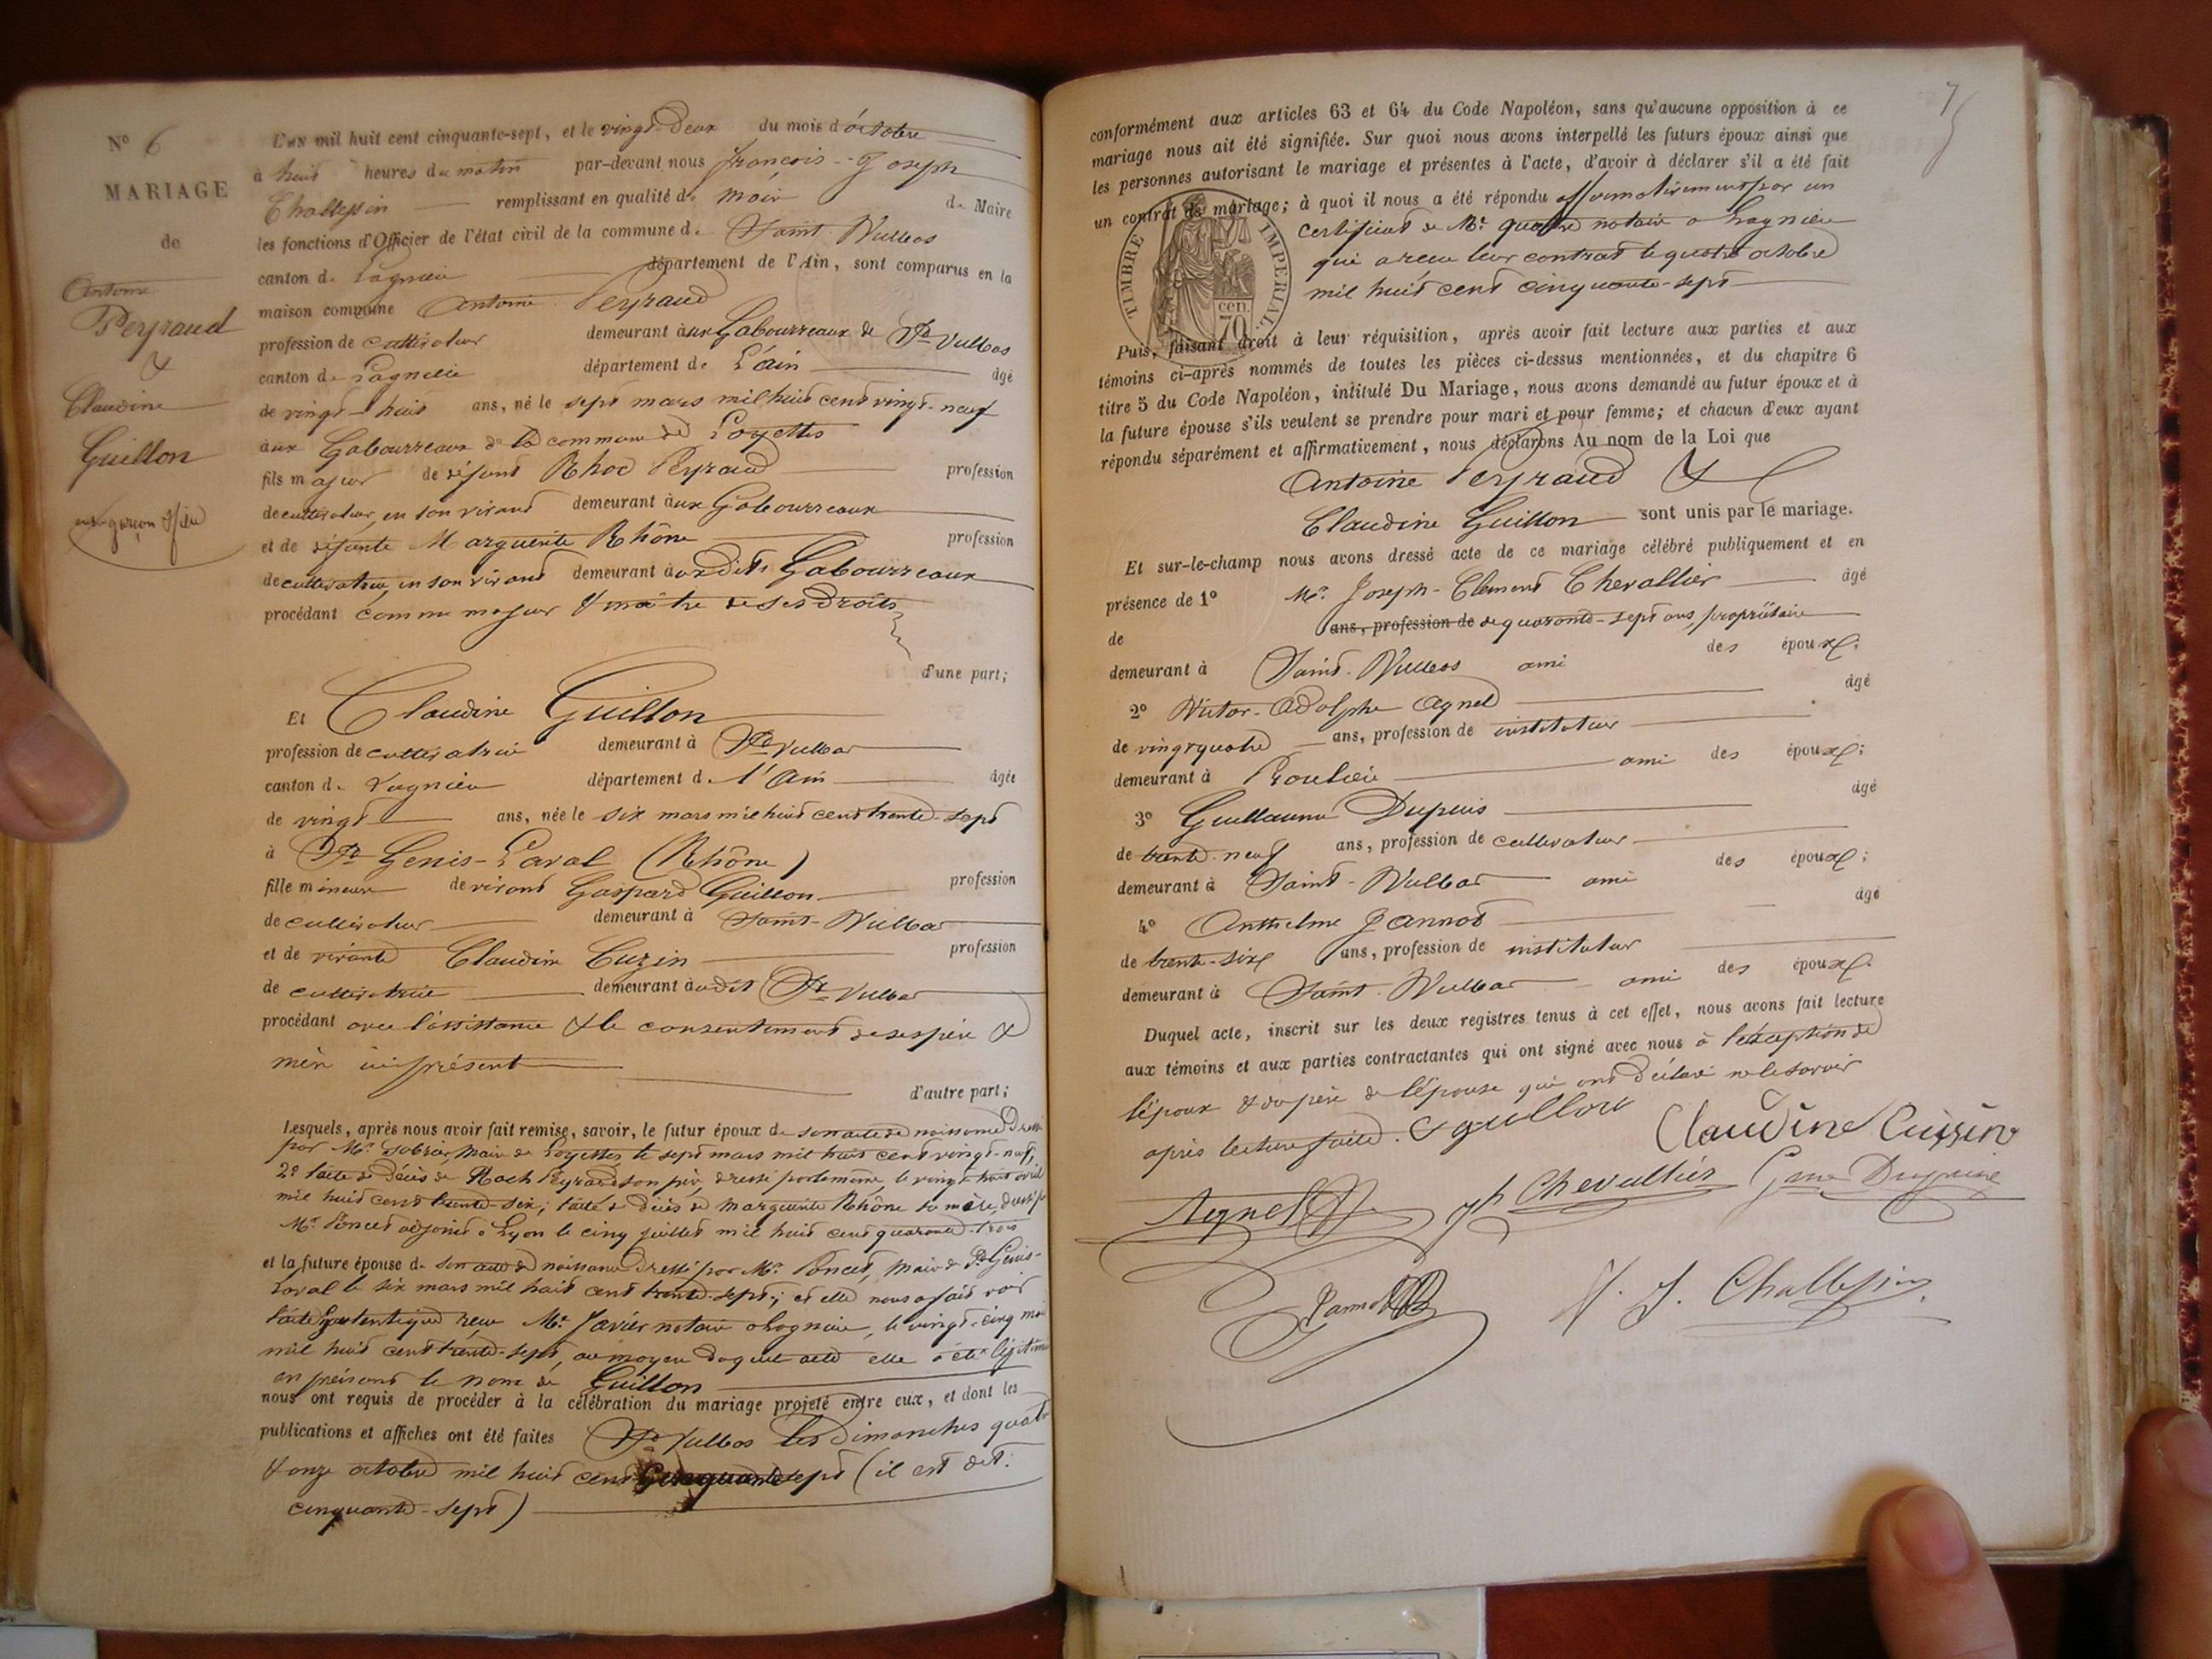 N° 6
MARIAGE
de
Antoine
Peyraud
&
Claudine
Guillon
L'an mil huit cent cinquante-sept, et le vingt-deux du mois d'octobre
à huit heures du matin par-devant nous françois-Joseph
Challessin remplissant en qualité de Maire de Maire
les fonctions d'Officier de l'état civil de la commune de Saint Vulbas
canton de Lagnieu département de l'Ain, sont comparus en la
maison commune Antoine Peyraud
profession de cultivateur demeurant aux Gabourreaux de St Vulbas
canton de Lagnieu département de L'ain âgé
de vingt-huit ans, né le sept mars mil huit cent vingt-neuf
aux Gabourreaux de la commune de Loyettes
fils majeur de défunt Rhoc Peyraud profession
de cultivateur, en son vivant demeurant aux Gabourreaux
et de défunte Marguerite Rhône profession
de cultivatrice, en son vivant demeurant auxdits Gabourreaux
procédant comme majeur & maître de ses droits
d'une part;
Et Claudine Guillon
profession de cultivatrice demeurant à St Vulbas
canton de Lagnieu département de l'Ain âgée
de vingt ans, née le six mars mil huit cent trente-sept
à St Genis-Laval (Rhône)
fille mineure de vivant Gaspard Guillon profession
de cultivateur demeurant à Saint-Vulbas
et de vivante Claudine Cuzin profession
de cultivatrice demeurant audit St Vulbas
procédant avec l'assistance & le consentement de ses père &
mère ici présent
d'autre part;
Lesquels, après nous avoir fait remise, savoir, le futur époux de son acte de naissance dressé
par Mr. Maire de Loyettes, le sept mars mil huit cent vingt-neuf,
2° l'acte de décès de Roch Peyraud son père, dressé par le même, le vingt-huit avril
mil huit cent trente-six; l'acte de décès de Marguerite Rhône sa mère, dressé par
Mr. Poncet adjoint à Lyon le cinq juillet mil huit cent quarante-trois
et la future épouse de son acte de naissance dressé par Mr. Poncet, Maire de St Genis-
Laval le six mars mil huit cent trente-sept; et elle nous a fait voir
l'acte autentique reçu Mr. Javier notaire à Lagnieu, le vingt-cinq mai
mil huit cent trente-sept, au moyen duquel acte elle a été légitimée
en prenant le nom de Guillon
nous ont requis de procéder à la célébration du mariage projeté entre eux, et dont les
publications et affiches ont été faites St Vulbas les Dimanches quatre
& onze octobre mil huit cent cinquante sept (il est dit:
cinquante-sept)
7
conformément aux articles 63 et 64 du Code Napoléon, sans qu'aucune opposition à ce
mariage nous ait été signifiée. Sur quoi nous avons interpellé les futurs époux ainsi que
les personnes autorisant le mariage et présentes à l'acte, d'avoir à déclarer s'il a été fait
un contrat de mariage; à quoi il nous a été répondu affirmativement par un
certificat de Mr. quatre notaire à Lagnieu
qui a reçu leur contrat le quatre octobre
mil huit cent cinquante-sept
TIMBRE IMPERIAL.
cen.
70
Puis, faisant droit à leur réquisition, après avoir fait lecture aux parties et aux
témoins ci-après nommés de toutes les pièces ci-dessus mentionnées, et du chapitre 6
titre 5 du Code Napoléon, intitulé Du Mariage, nous avons demandé au futur époux et à
la future épouse s'ils veulent se prendre pour mari et pour femme; et chacun d'eux ayant
répondu séparément et affirmativement, nous déclarons Au nom de la Loi que
Antoine Peyraud &
Claudine Guillon sont unis par le mariage.
Et sur-le-champ nous avons dressé acte de ce mariage célébré publiquement et en
présence de 1° Mr. Joseph-Clement Chevallier âgé
de ans, profession de de quarante-sept ans, propriétaire
demeurant à Saint-Vulbas ami des époux.
2° Victor-Adolphe Agnel âgé
de vingtquatre ans, profession de instituteur
demeurant à Proulieu ami des époux;
3° Guillaume Dupuis âgé
de trente-neuf ans, profession de cultivateur
demeurant à Saint-Vulbas ami des époux;
4° Anthelme Jannot âgé
de trente-six ans, profession de instituteur
demeurant à Saint-Vulbas ami des époux.
Duquel acte, inscrit sur les deux registres tenus à cet effet, nous avons fait lecture
aux témoins et aux parties contractantes qui ont signé avec nous à l'éxception de
l'époux & du père de l'épouse qui ont déclaré ne le savoir
après lecture faite. C guillon Claudine Cuzin
Agnel jh Chevallier Gme Dupuis
Jannot f. J. Challessin